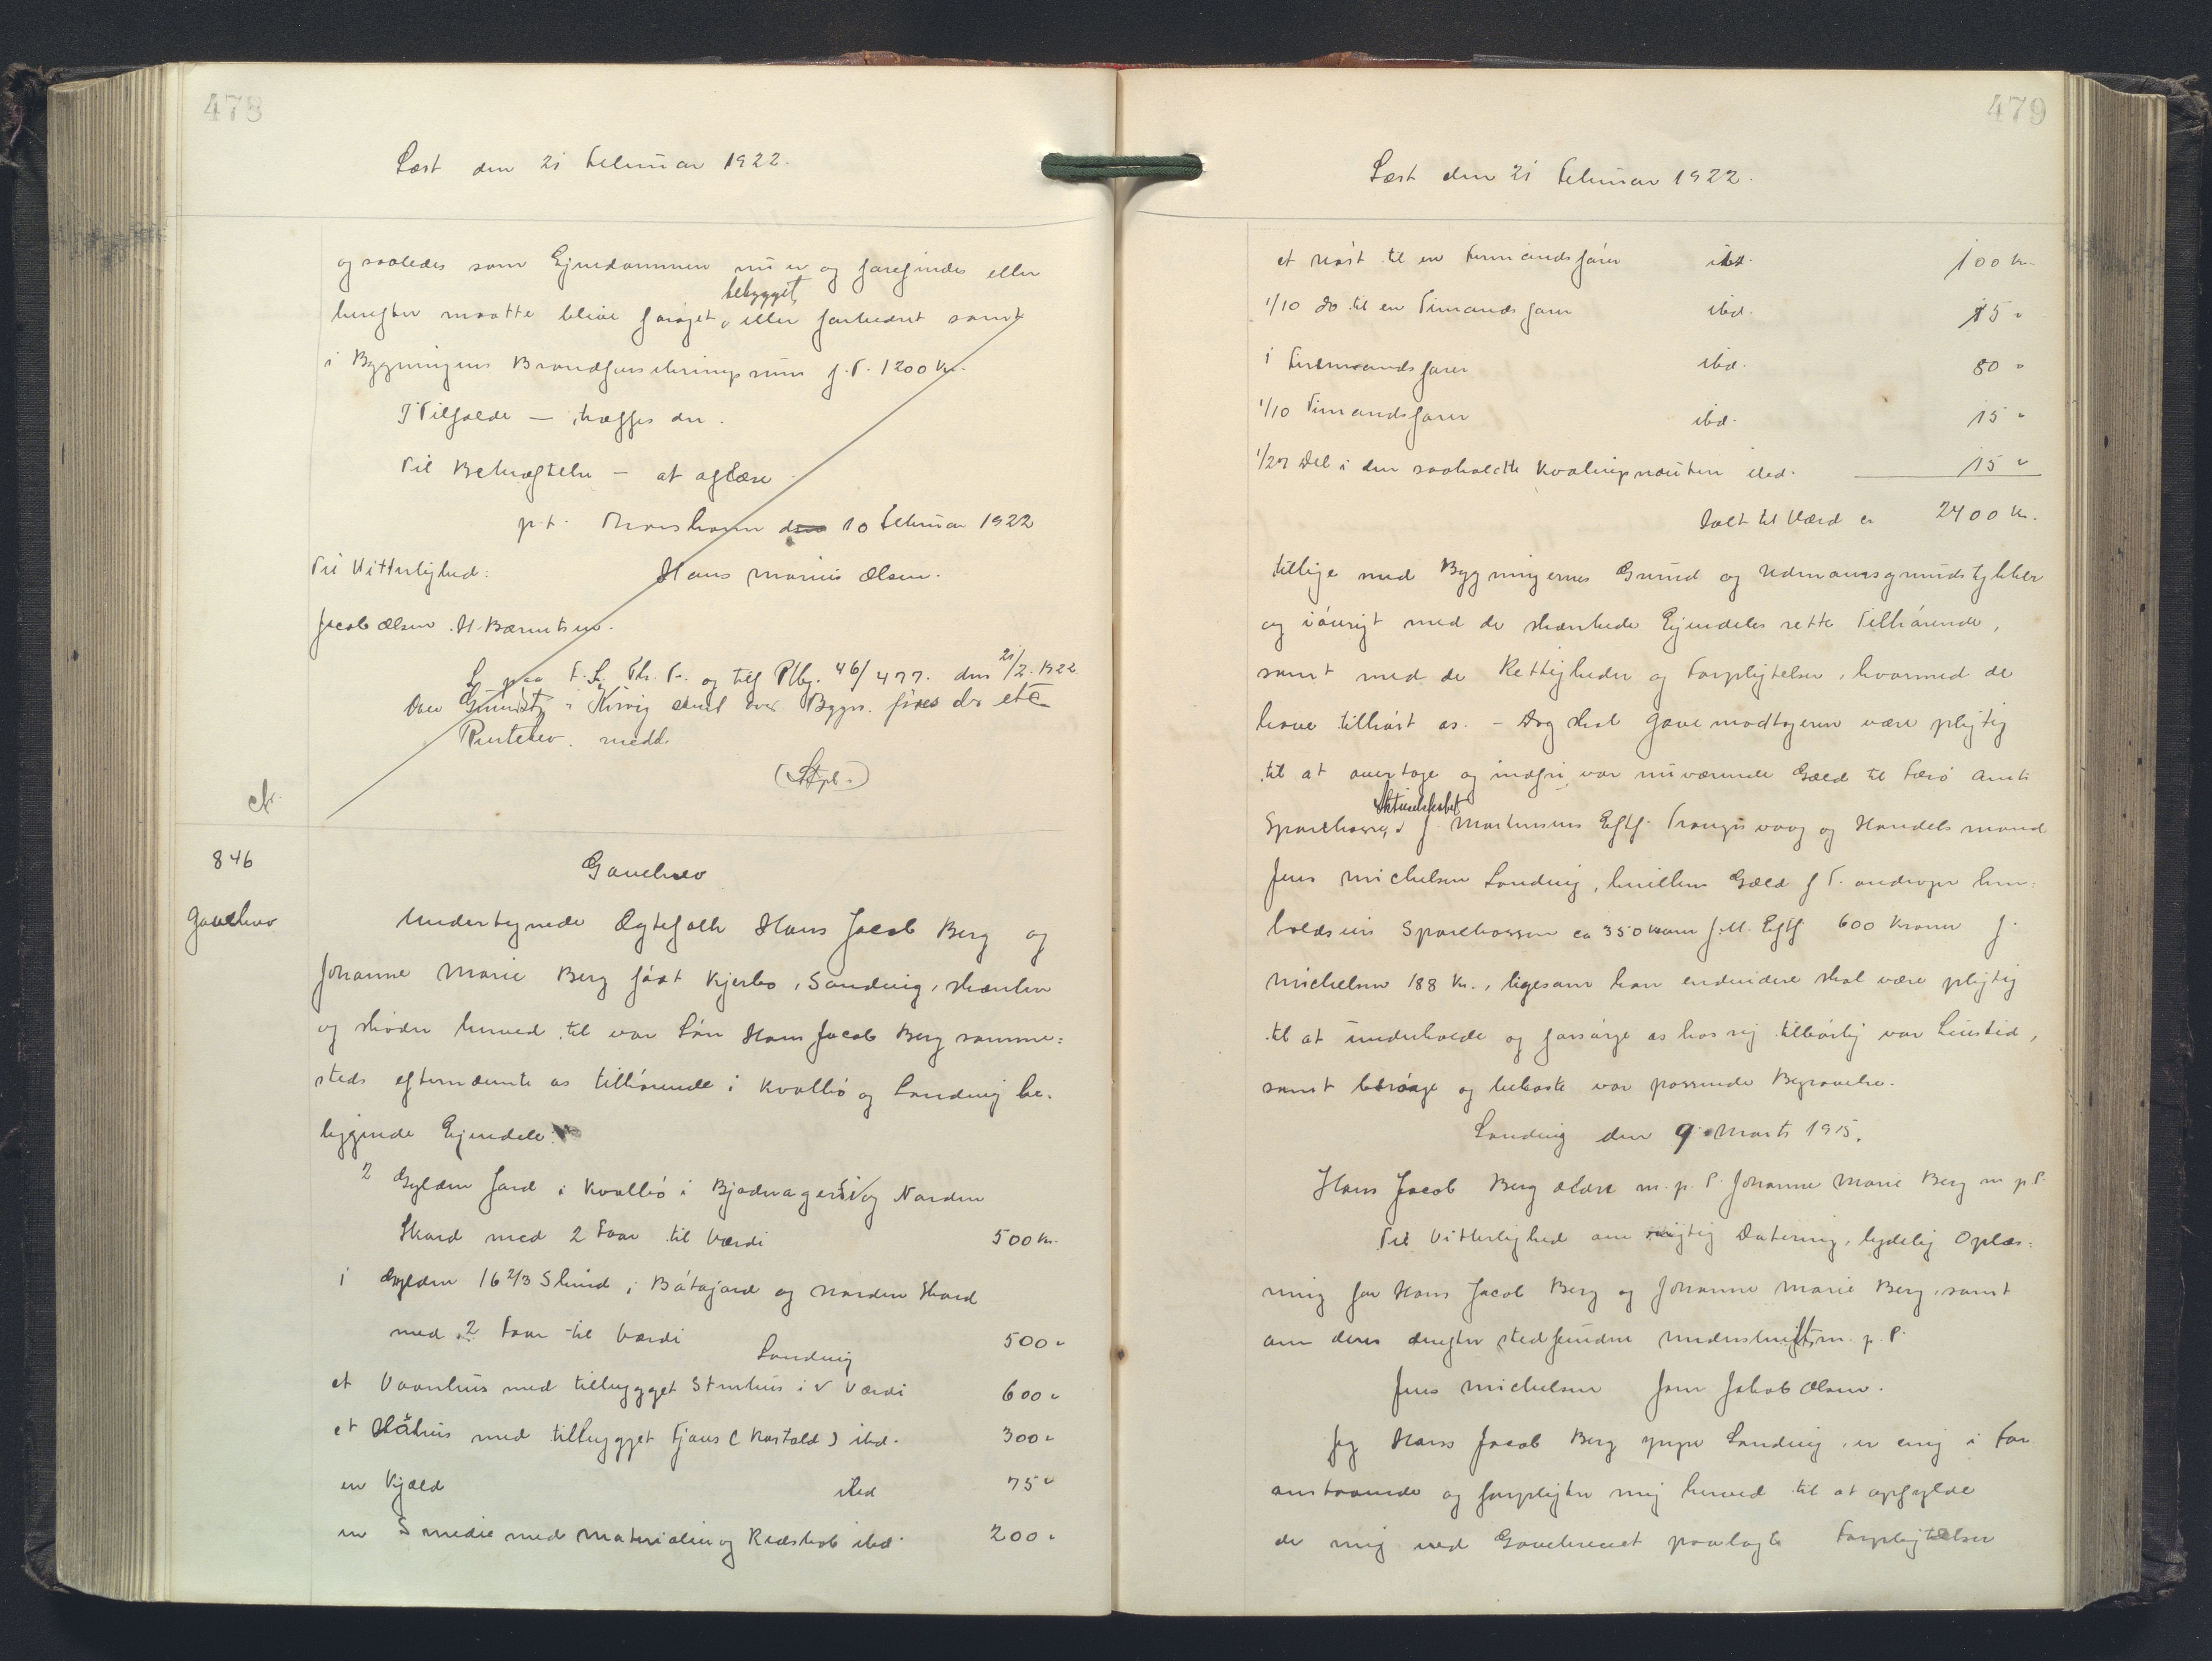 478
Læst den 21 Februar 1922.
og saaledes som Ejendommen nu er og forefindes eller
bebygget,
herefter maatte blive forøget, eller forbedret samt
i Bygningens Brandforsikringssum f. T. 1200 Kr.
I Tilfælde — træffes der.
Til Bekræftelse — at aflæse
p.t. Thorshavn den 10 Februar 1922
Til Vitterlighed: Hans Marius Olsen.
Jacob Olsen. H. Bærentsen.
L. paa F. S. Th. T. og tilf Ptbg. 46/477. den 21/2. 1922
Over Grundst. i Kirvig samt over Bygn. føres do etc
Rentebev. medd.
(Stpl.)
cfr.
846
Gavebrev
Gavebrev
Undertegnede Ægtefolk Hans Jacob Berg og
Johanne Marie Berg født Kjerbo, Sandvig, skænker
og skøder herved til vor Søn Hans Jacob Berg samme=
steds efternævnte os tilhørende i Kvalbø og Sandvig be-
liggende Ejendele:
2 Gylden Jord i Kvalbø i Bjadnagerdi og Norden
Skard med 2 Faar til Værdi 500 Kr.
1 Gylden 16 2/3 Skind i Bátagard og Norden Skard
med 2 Faar til Værdi 500 "
Sandvig
et Vaanhus med tilbygget Stenhus i v Værdi 600 "
et Hähus med tilbygget Fjøus (Kostald) ibd. 300 "
en Kjæld ibd 75 "
en Smedie med Materialier og Redskab ibd. 200 "
479
Læst den 21 Februar 1922.
et Nøst til en Firmandsfarer ibd. 100 Kr.
1/10 do til en Timands farer ibd. 15 "
1 Firemandsfarer ibd. 80 "
1/10 Timandsfarer ibd. 15 "
1/27 Del i den saakaldte Kvalingsnøuten ibd. 15 "
Ialt til Værd er 2400 Kr.
tillige med Bygningernes Grund og Udmarksgrundstykker
og iøvrigt med de skænkede Ejendeles rette Tilhørende,
samt med de Rettigheder og Forpligtelser, hvormed de
have tilhørt os. – Dog skal Gavemodtageren være pligtig
til at overtage og indfri vor nuværende Gæld til Færø Amts
Aktieselskabet
Sparekasse, v J. Mortensens Eftf. Trangisvaag og Handelsmand
Jens Michelsen Sandvig, hvilken Gæld f. T. andrager hen=
holdsvis Sparekassen ca 350 Kroner J. M. Eftf 600 Kroner J.
Michelsen 188 Kr., ligesom han endvidere skal være pligtig
til at underholde og forsørge os hos sig tilbørlig vor Livstid,
samt besørge og bekoste vor passende Begravelse.
Sandvig den 9. Marts 1915.
Hans Jacob Berg ældre m. p. P. Johanne Marie Berg m. p. P.
Til Vitterlighed om rigtig Datering, tydelig Oplæs=
ning for Hans Jacob Berg og Johanne Marie Berg, samt
om deres derefter stedfundne Underskrift, m. p. P.
Jens Michelsen Jens Jakob Olsen.
Jeg Hans Jacob Berg yngre Sandvig, er enig i For
anstaaende og forpligter mig herved til at opfylde
de mig ved Gavebrevet paalagte Forpligtelser